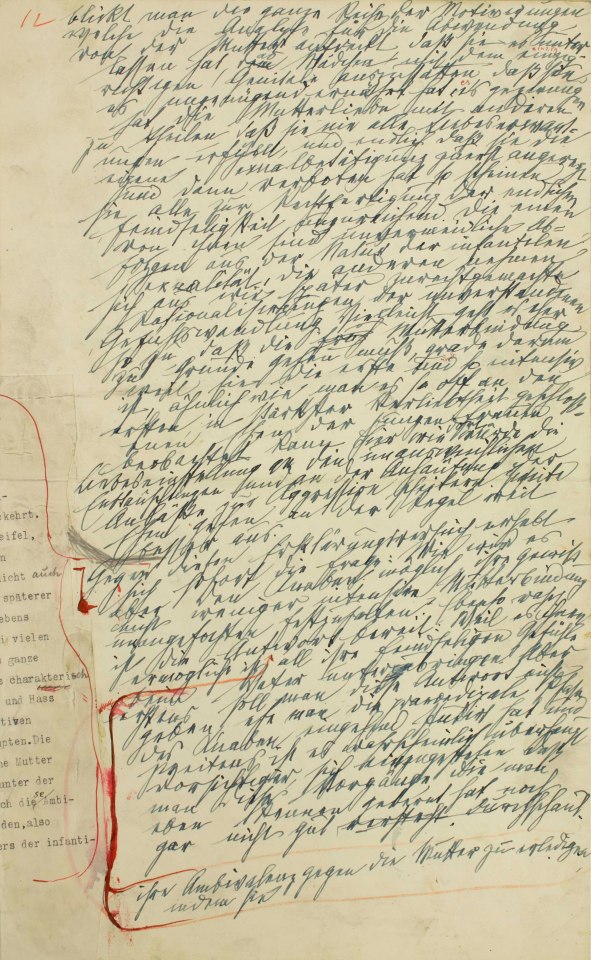 12
blickt man die ganze Reihe der Motivierungen
welche die Analyse für die Abwendung
von der Mutter aufdeckt daß sie es unter
lassen hat das Mädchen mit dem einzig
richtigen Genitale auszustatten, daß sie
es ungenügend ernährt hat es gezwungen
hat die Mutterliebe mit anderen
zu theilen daß sie nie alle Liebeserwart-
ungen erfüllt, und endlich daß sie die
eigene Sexualbetätigung zuerst angeregt
und dann verboten hat so scheinen
sie alle zur Rechtfertigung der endlichen
Feindseligkeit unzureichend. Die einen
von ihnen sind unvermeidliche Ab-
folgen aus der Natur der infantilen
Sexualität, die anderen nehmen
sich aus wie später zurechtgemachte
Rationalisierungen der unverstandenen
Gefühlswandlung. Vielleicht geht es eher
so zu daß die Mutterbindung
zu Grunde gehen muß, grade darum
weil sie die erste und so intensiv
ist, ähnlich wie man es so oft an den
ersten in stärkster Verliebtheit geschloss-
enen Ehen der jungen Frauen
beobachten kann. Hier wie dort würde die
Liebeseinstellung an den unausweichlichen
Enttäuschungen und an der Anhäufung der
Anlässe zur Aggression scheitern. Zweite
Ehen gehen in der Regel weit
besser aus.
Gegen diesen Erklärungsversuch erhebt
sich sofort die Frage: Wie wird es
aber den Knaben möglich, ihre gewiß
nicht weniger intensive Mutterbindung
unangefochten festzuhalten. Ebenso rasch
ist die Antwort bereit: Weil es ihnen
ermöglicht ist, all ihre feindseligen Gefühle
beim Vater unterzubringen. Aber
erstens soll man diese Antwort nicht
geben, ehe man die praeödipale Phase
des Knaben eingehend studirt hat und
zweitens ist es wahrscheinlich überhaupt
vorsichtiger, sich einzugestehen daß
man diese Vorgänge, die man
eben kennen gelernt hat noch
gar nicht gut durchschaut.
ihre Ambivalenz gegen die Mutter zu erledigen,
indem sie
kehrt.
eifel,
n
icht auch
späterer
ebens
i vielen
s ganze
s charakterisch
und Hass
tiven
pten.Die
he Mutter
unter der
ch diese Ambi-
den,also
ers der infanti-